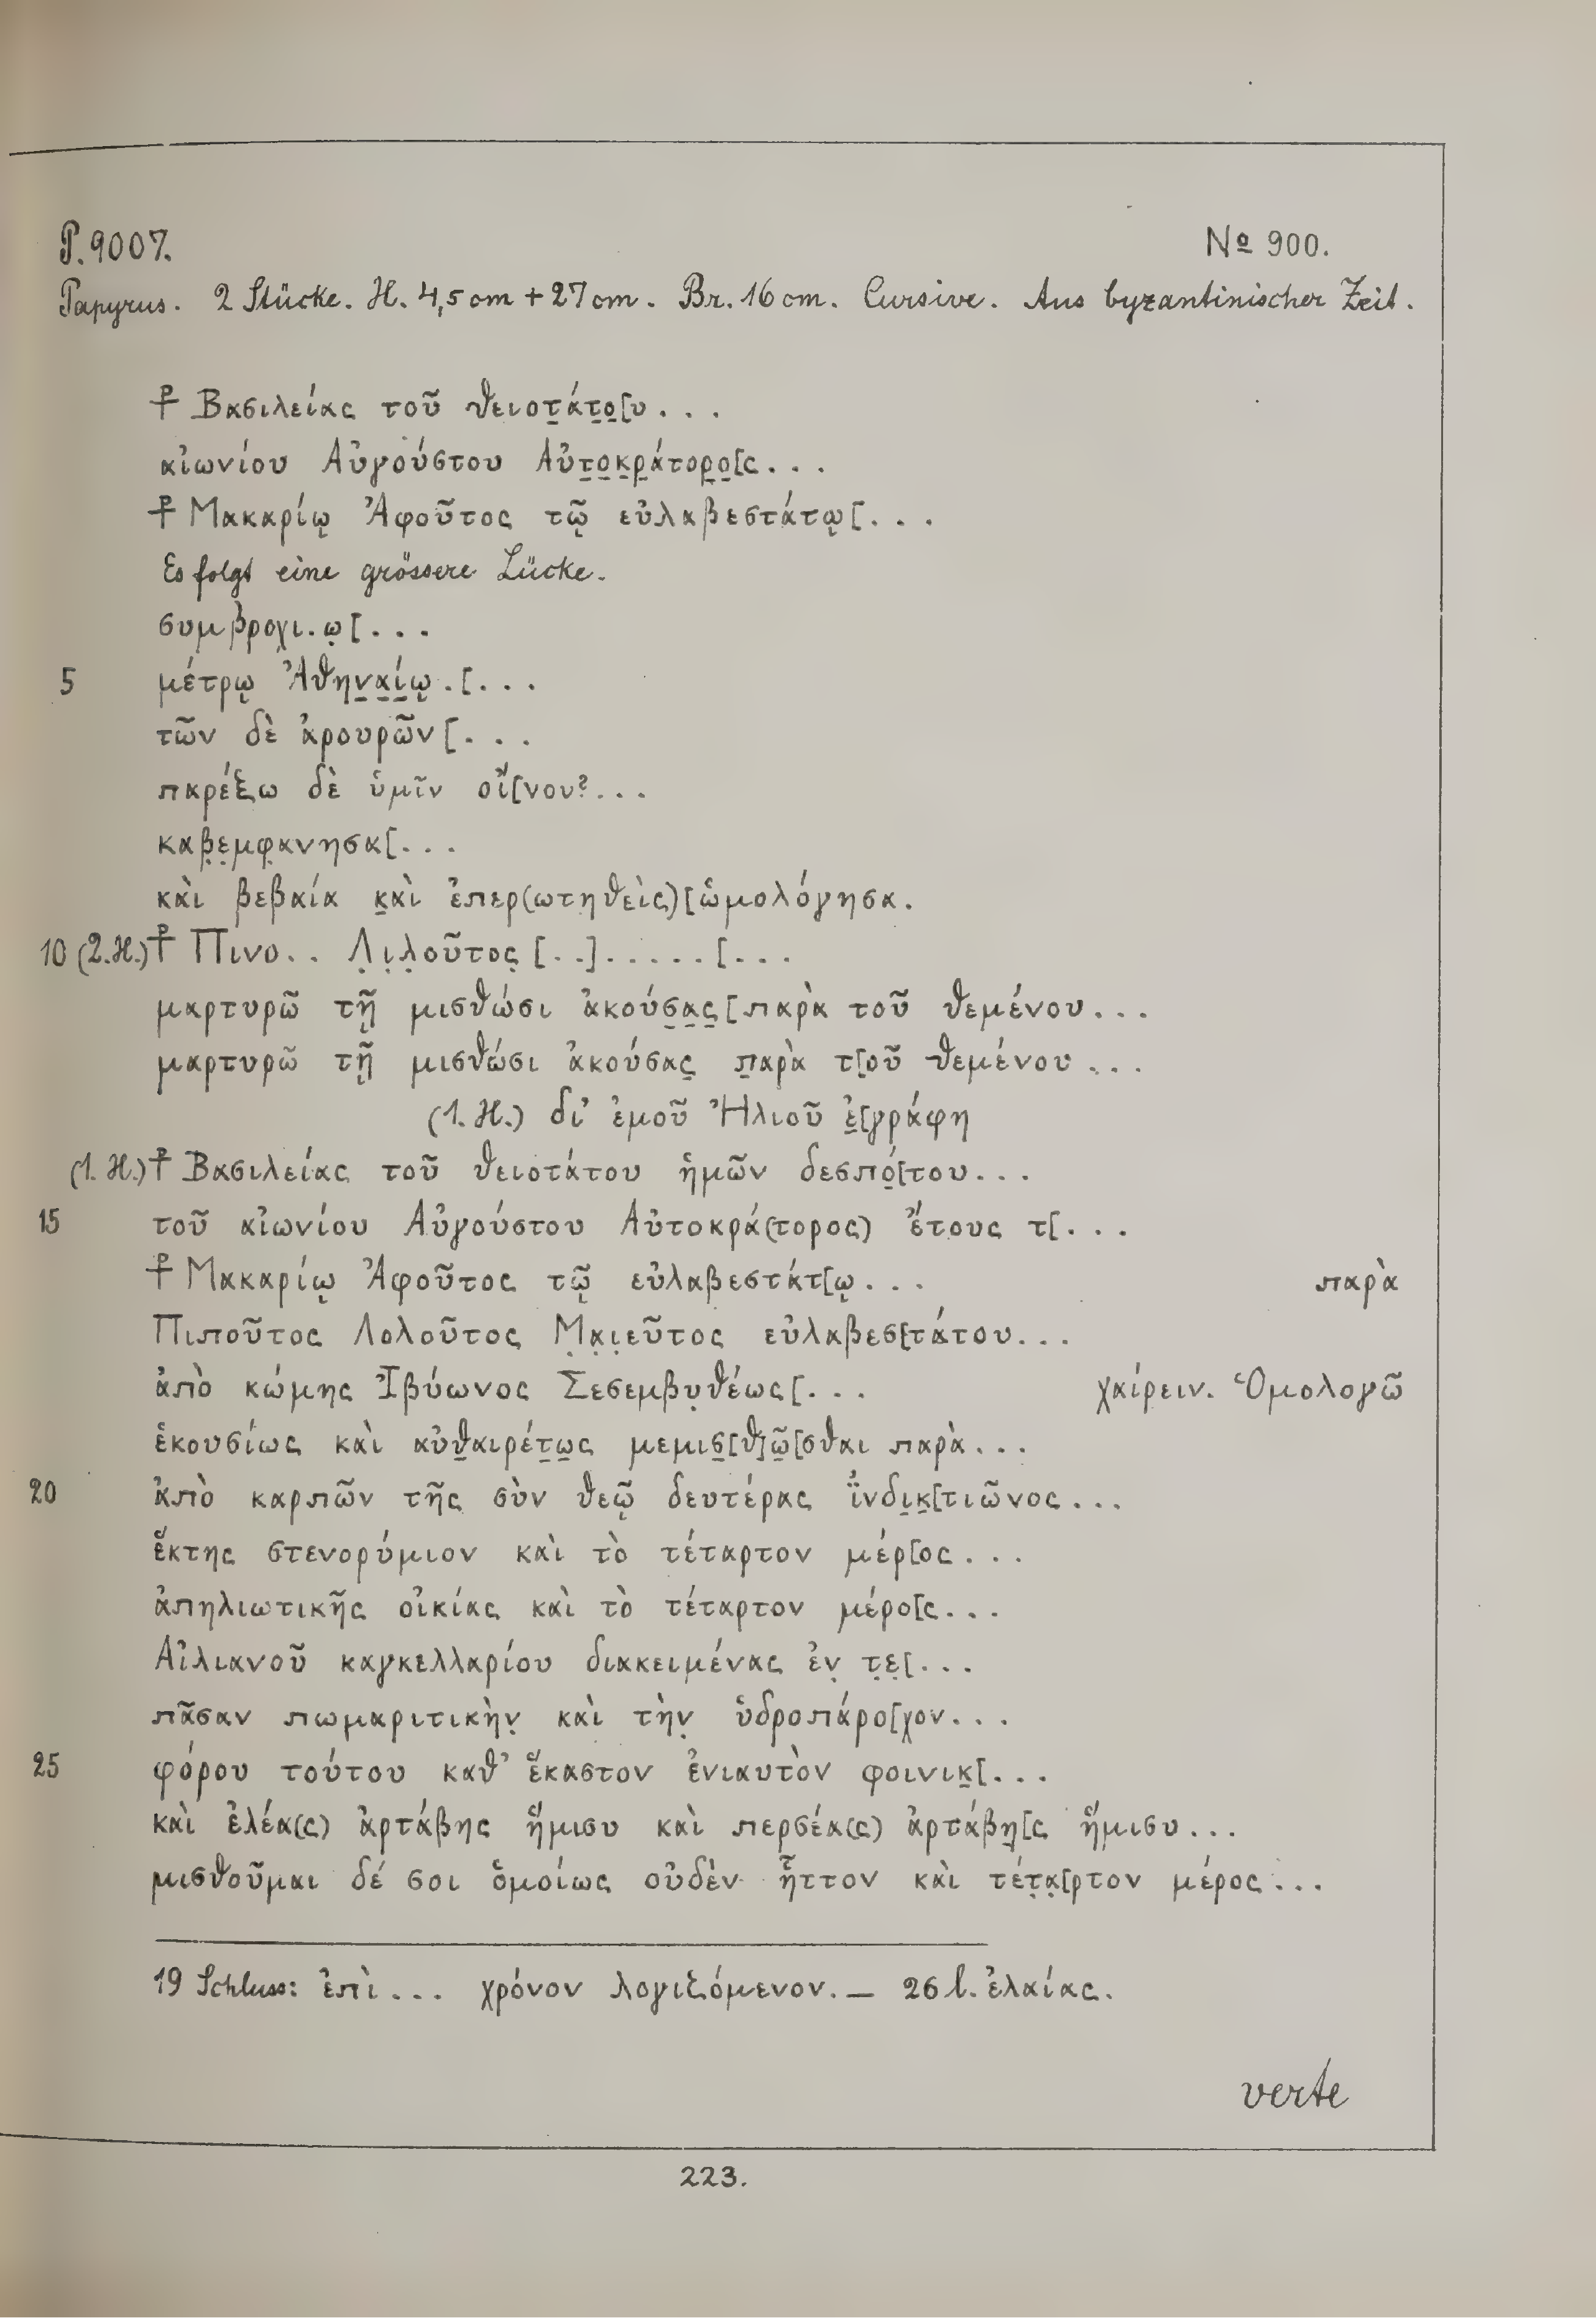 P. 9007. No 900.
Papyrus. 2 Stücke. H. 4,5 cm + 27 cm. Br. 16 cm. Cursive. Aus byzantinischer Zeit.
⳨ Βασιλείας τοῦ θειοτ̣άτ̣ο̣[υ...
αἰωνίου Αὐγούστου Αὐτ̣ο̣κ̣ρ̣άτορ̣ο̣[ς...
⳨ Μακαρίῳ Ἀφοῦτος τῷ εὐλαβεστάτῳ[...
Es folgt eine grössere Lücke.
συμβροχι.ω̣[...
5 μέτρῳ Ἀθην̣α̣ί̣ῳ.[...
τῶν δὲ ἀρουρῶν[...
παρέξω δὲ ὑμῖν οἴ[νου?...
καβ̣ε̣μφ̣ανησα[...
καὶ βεβαία κ̣αὶ ἐπερ(ωτηθεὶς)[ὡμολόγησα.
10 (2.H.) ⳨ Πινο.. Λ̣ι̣λ̣οῦτος̣ [..].....[...
μαρτυρῶ τῇ μισθώσι ἀκούσ̣α̣ς̣[παρὰ τοῦ θεμένου...
μαρτυρῶ τῇ μισθώσι ἀκούσας̣ π̣αρὰ τ[οῦ θεμένου...
(1.H.) δι’ ἐμοῦ Ἡλιοῦ ἐ̣[γράφη
(1.H.) ⳨ Βασιλείας τοῦ θειοτάτου ἡμῶν δεσπό̣[του...
15 τοῦ αἰωνίου Αὐγούστου Αὐτοκρά(τορος) ἔτους τ[...
⳨ Μακαρίῳ Ἀφοῦτος τῷ εὐλαβεστάτ[ῳ... παρὰ
Πιποῦτος Λολοῦτος Μ̣α̣ι̣εῦτος εὐλαβεσ[τάτου...
ἀπὸ κώμης Ἰβύωνος Σεσεμβυ̣θέως[... χαίρειν. Ὁμολογῶ
ἑκουσίως καὶ αὐθ̣αιρέτ̣ω̣ς μεμισ̣[θ]ῶ̣[σθαι παρὰ...
20 ἀπὸ καρπῶν τῆς σὺν θεῷ δευτέρας ἴνδι̣κ̣[τιῶνος...
ἕκτης στενορύμιον καὶ τὸ τέταρτον μέρ[ος...
ἀπηλιωτικῆς οἰκίας καὶ τὸ τέταρτον μέρο[ς...
Αἰλιανοῦ καγκελλαρίου διακειμένας ἐν̣ τ̣ε̣[...
πᾶσαν πωμαριτικὴν̣ καὶ τὴν̣ ὑδροπάρο[χον...
25 φόρου τούτου καθ’ ἕκαστον ἐνιαυτὸν φοινικ̣[...
καὶ ἐλέα(ς) ἀρτάβης ἥμισυ καὶ περσέα(ς) ἀρτάβη̣[ς ἥμισυ...
μισθοῦμαι δέ σοι ὁμοίως οὐδὲν ἧττον καὶ τέτ̣α̣[ρτον μέρος...
19 Schluss: ἐπὶ... χρόνον λογιζόμενον. — 26 l. ἐλαίας.
verte
223.